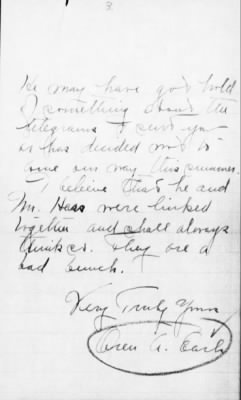 3
He may have got hold
of something about the
telegrams I sent you
or has decided not to
come our way this summer.
I believe that he and
Mr. Hass were linked
together and shall always
think so. They are a
bad bunch.
Very Truly Yours
Oren A.